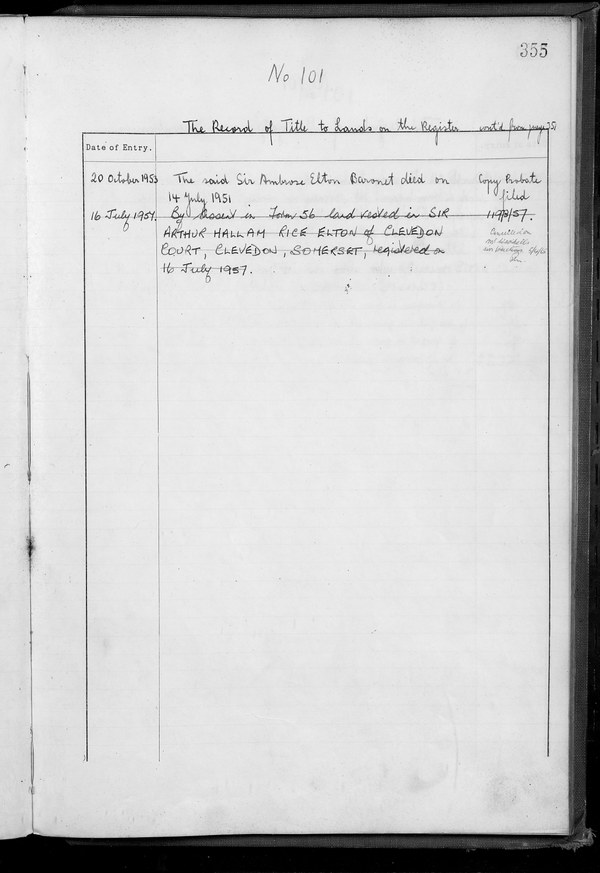 355
No 101
The Record of Title to Lands on the Register cont'd from page 35
Date of Entry.
20 October 1953 The said Sir Ambrose Elton Baronet died on Copy Probate
14 July 1951 filed
16 July 1957. By Assent in Form 56 land vested in SIR 119/8/57.
ARTHUR HALLAM RICE ELTON of CLEVEDON Cancelled on
COURT, CLEVEDON, SOMERSET, registered on
16 July 1957.